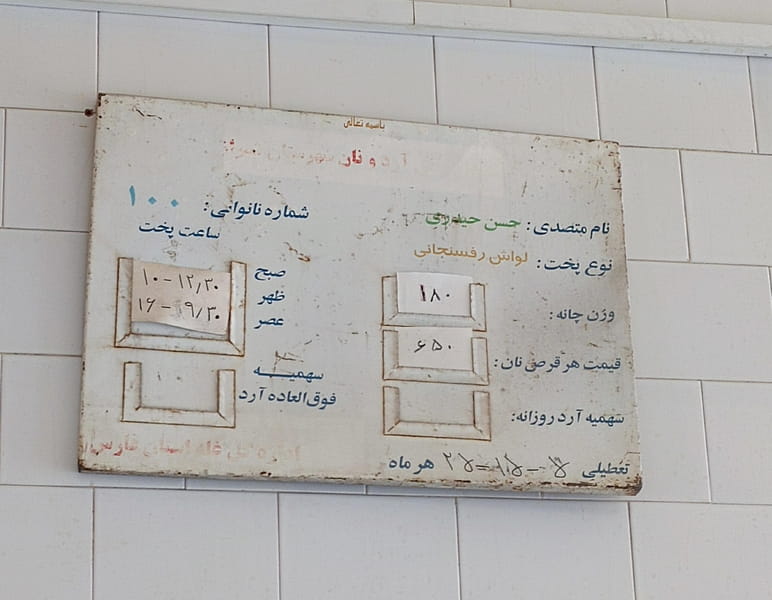 باسمه تعالی
آرد و نان شهرستان
نام متصدی: حسن حیدری
نوع پخت: لواش رفسنجانی
وزن چانه: ۱۸۰
قیمت هر قرص نان: ۶۵۰
سهمیه آرد روزانه:
تعطیلی ۵-۱۵-۲۵ هر ماه
شماره نانوائی: ۱۰۰
ساعت پخت
صبح
ظهر
عصر
۱۰-۱۲/۳۰
۱۶-۱۹/۳۰
سهمیه
فوق العاده آرد
اداره کل غله استان فارس